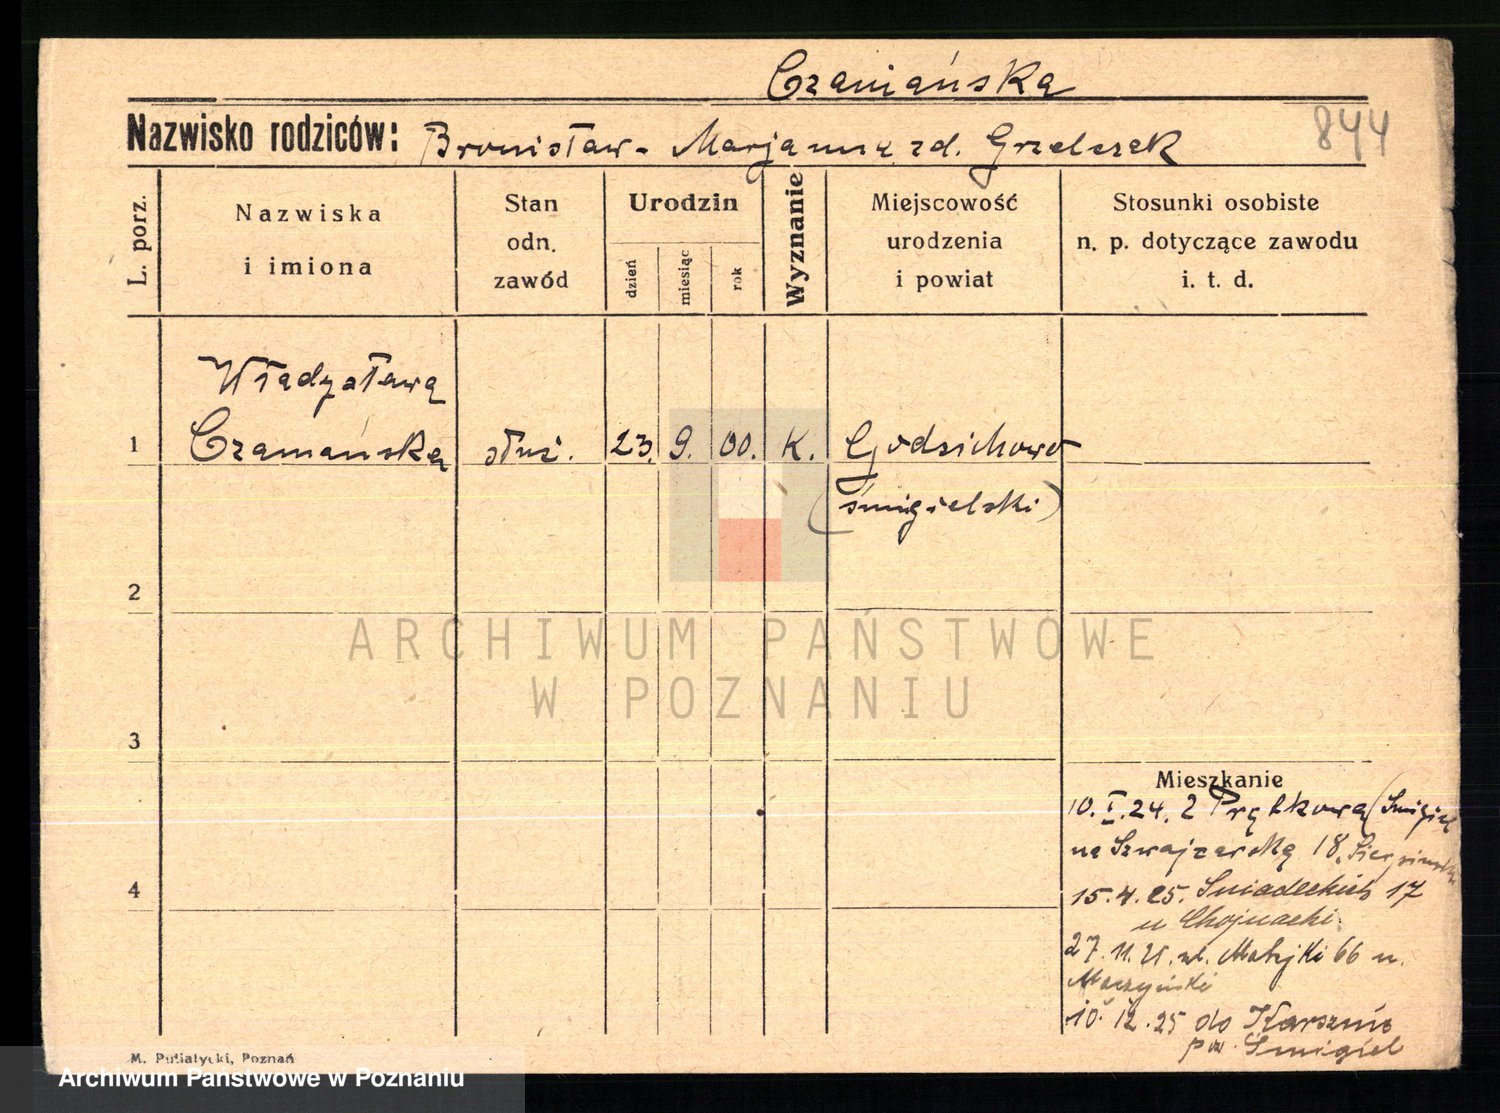 Czamańska
844
Nazwisko rodziców: Bronisław - Marjanna zd. Grzelczak
L. porz.
Nazwiska
i imiona
Stan
odn.
zawód
Urodzin
dzień
miesiąc
rok
Wyznanie
Miejscowość
urodzenia
i powiat
Stosunki osobiste
n. p. dotyczące zawodu
i. t. d.
Władysława
1 Czamańska służ. 23. 9. 00. K. Godzichowo
(śmigielski)
2
ARCHIWUM PAŃSTWOWE
W POZNANIU
3
Mieszkanie
10. I. 24. z (Śmigiel
na Szwajcarską 18,
4
15. 4. 25. Śniadeckich 17
u Chojnacki
27. 11. 25. ul. Matejki 66 u.
10. 12. 25 do
pow. Śmigiel
M. Putiatycki, Poznań
Archiwum Państwowe w Poznaniu